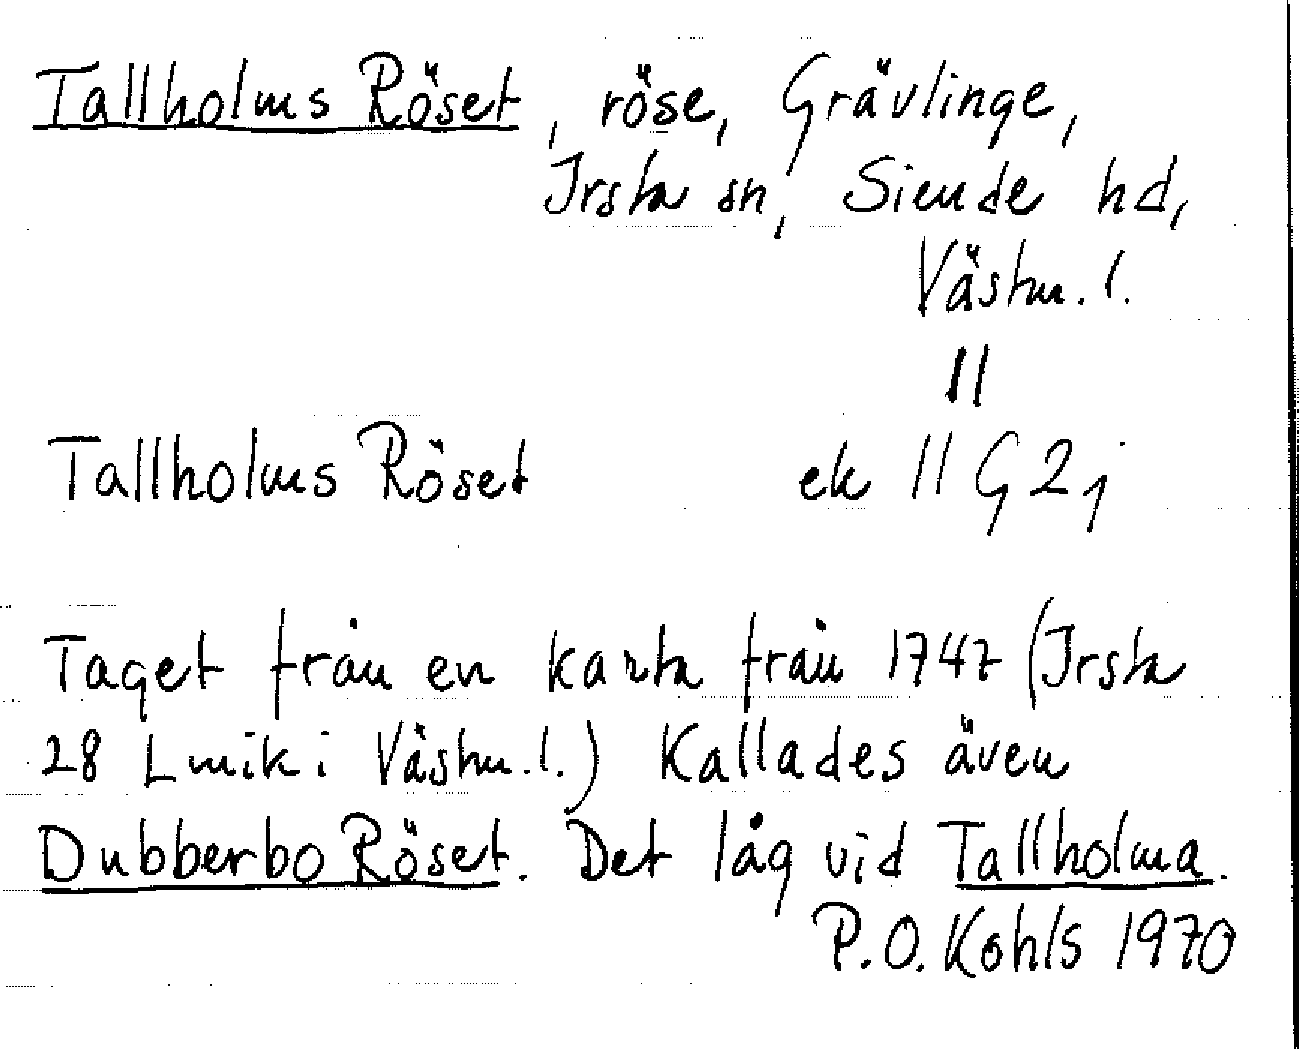 Tallholms Röset, röse, Grävlinge,
Irsta sn, Siende hd,
Västm. l.
11
Tallholms Röset ek 11 G 2j
Taget från en karta från 1747 (Irsta
28 Lmik i Västm. l.) Kallades även
Dubberbo Röset. Det låg vid Tallholma.
P.O. Kohls 1970